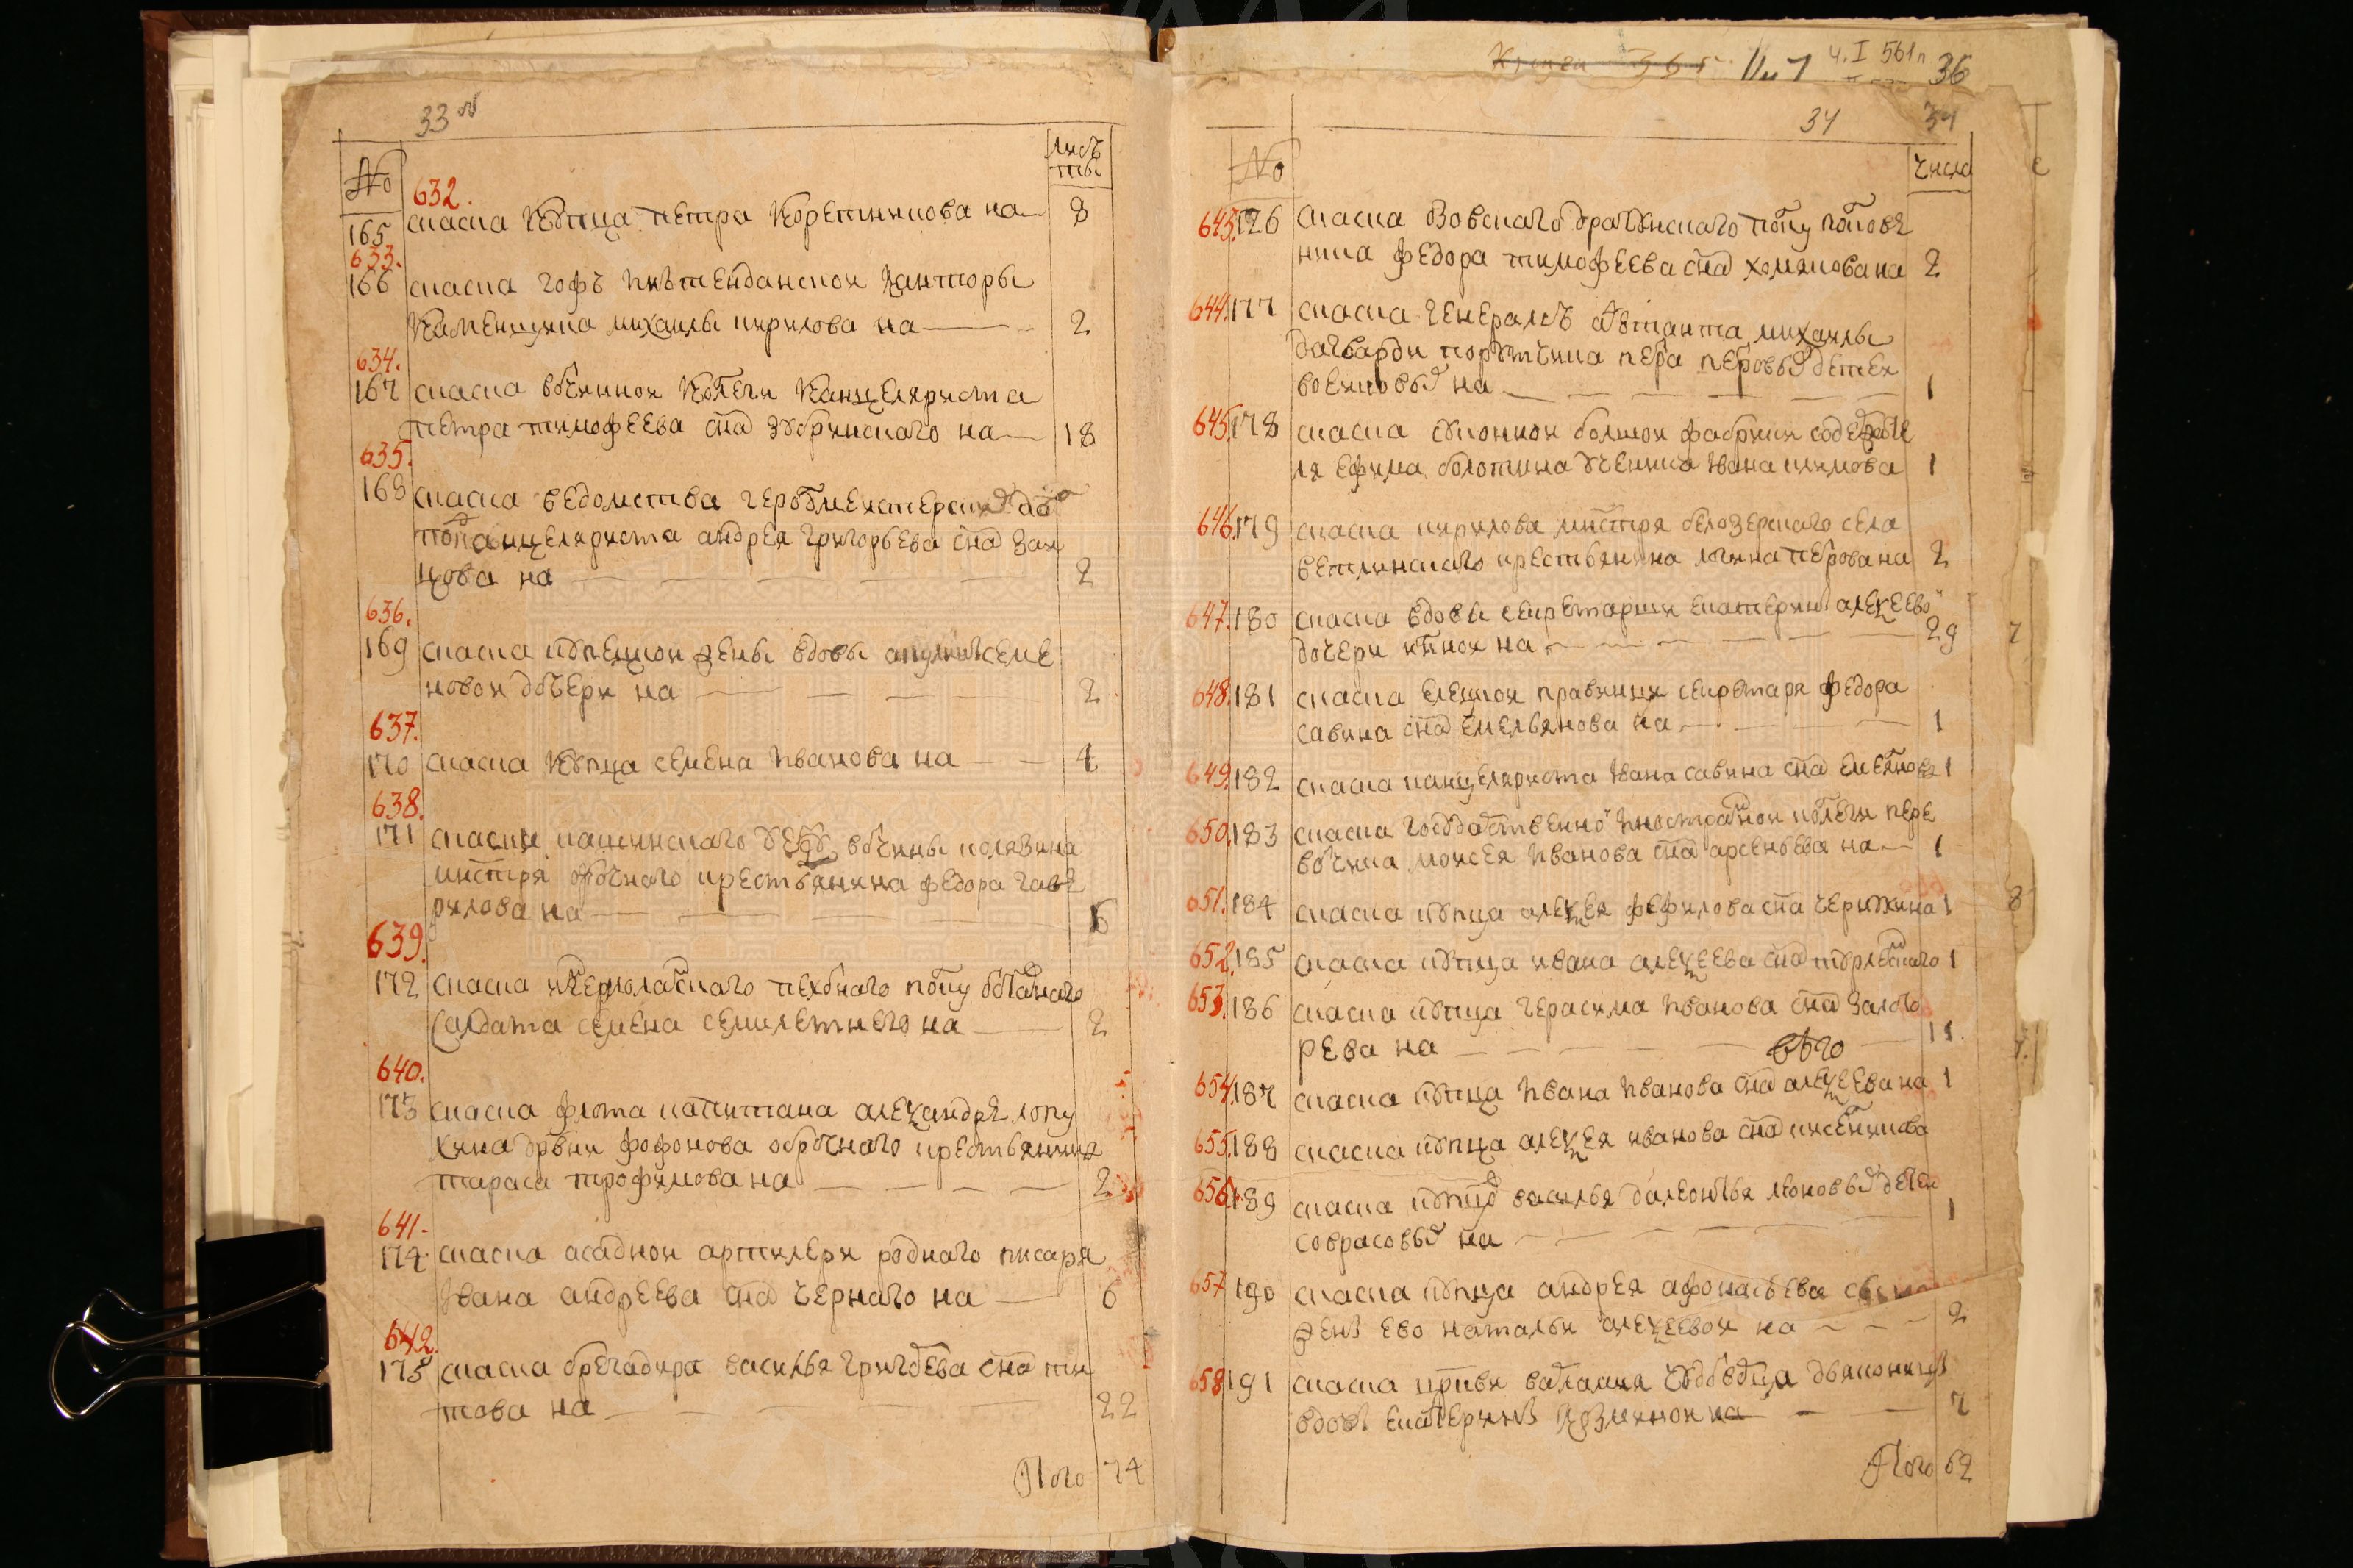 33 об
№
листы
632.
165 скаска купца петра коретникова на 8
633.
166 скаска гофъ интенданской канторы
каменщика михаилы кирилова на 2
634.
167 скаска вотчинной колегии канцеляриста
петра тимофеева сна зубринского на 18
635.
168 скаска ведомства герольдмейстерских дел
подканцеляриста андрея григорьева сна
кова на 2
636.
169 скаска купецкой жены вдовы семе
новой дочери на 2
637.
170 скаска купца семена иванова на 4
638.
171 скаски кашинского уезду вотчины колязина
мнстря оброчного крестьянина федора гав
рилова на 6
639.
172 скаска пехотного полку отставного
салдата семена семилетнего на 2
640.
173 скаска флота капитана александра лопу
хина дрвни фофонова оброчного крестьянина
тараса трофимова на 2
641.
174 скаска асадной артилерии писаря
ивана андреева сна черного на 6
642.
175 скаска брегадира василья григорьева сна ти
това на 22
Итого 74
Книги 365 № 1 ч. I 561л 36
34 34
№
числа
643. 176 скаска азовского драгунского полку полков
ника федора тимофеева сна хомякова на 2
644. 177 скаска генералсъ адъютанта михаилы
да гварди порутчика петра петровых детей
воейковых на 1
645. 178 скаска суконной болшой фабрики содержате
ля ефима болотина ученика ивана климова 1
646. 179 скаска кирилова мнстря белозерского села
крестьянина петрова на 2
647. 180 скаска вдовы секретарши екатерины алексеево
дочери на 29
648. 181 скаска елецкой правинции секретаря федора
савина сна емельянова на 1
649. 182 скаска канцеляриста ивана савина сна емельянова 1
650. 183 скаска государственно иностранной колегии пере
вотчика моисея иванова сна арсеньева на 1
651. 184 скаска купца алексея фефилова сна 1
652. 185 скаска купца ивана алексеева сна 1
653. 186 скаска купца герасима иванова сна
рева на 11
654. 187 скаска купца ивана иванова сна алексеева на 1
655. 188 скаска купца алексея иванова сна
656. 189 скаска купцов василья да леонтья детей
собрасовых на 1
657. 190 скаска купца андрея афонасьева
жены ево натальи алексеевой на 2
658. 191 скаска
вдовы екатерины на 7
Итого 62